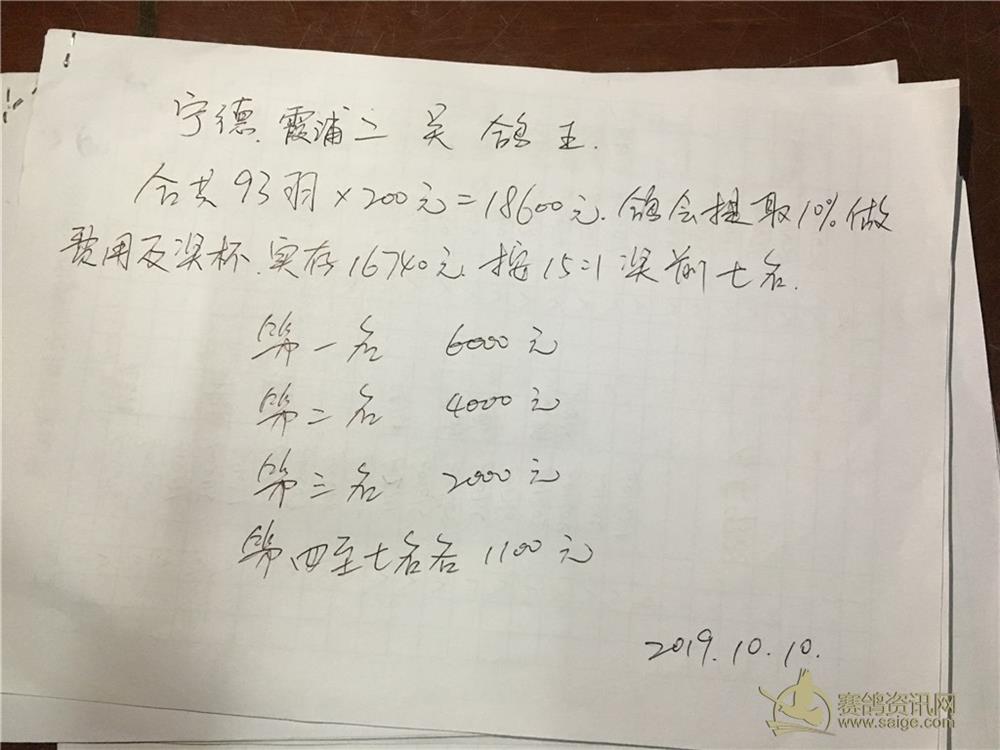 宁德.霞浦二关鸽王.
合共93羽×200元=18600元.鸽会提取10%做
费用及奖杯.实存16740元.按15:1奖前七名.
第一名 6000元
第二名 4000元
第三名 2000元
第四至七名各1100元
2019.10.10.
赛鸽资讯网
www.saige.com